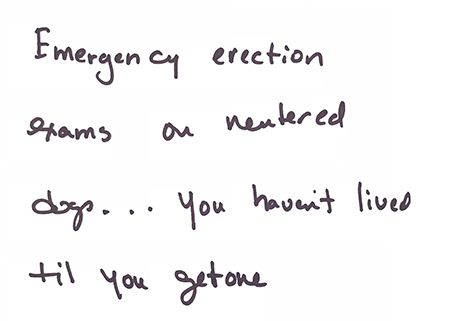 Emergency erection
exams on neutered
dogs... you haven't lived
til you get one